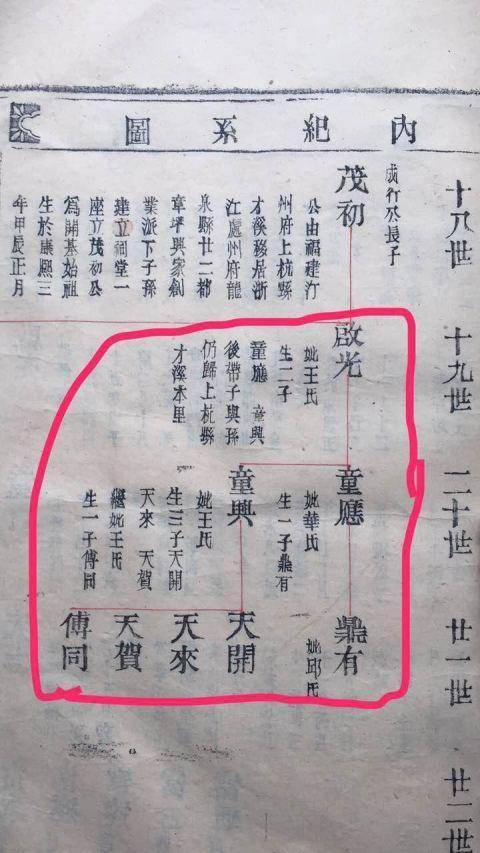 內紀系圖
十八世
十九世
二十世
廿一世
廿二世
成行公長子
茂初
公由福建汀
州府上杭縣
才溪移居浙
江處州府龍
泉縣廿二都
章坪興家創
業派下子孫
建立祠堂一
座立茂初公
為開基始祖
生於康熙三
年甲辰正月
啟光
妣王氏
生二子
童應 童興
後帶子與孫
仍歸上杭縣
才溪本里
童應
妣華氏
生一子鼎有
童興
妣王氏
生三子天開
天來 天賀
繼妣王氏
生一子傅同
鼎有
妣邱氏
天開
天來
天賀
傅同